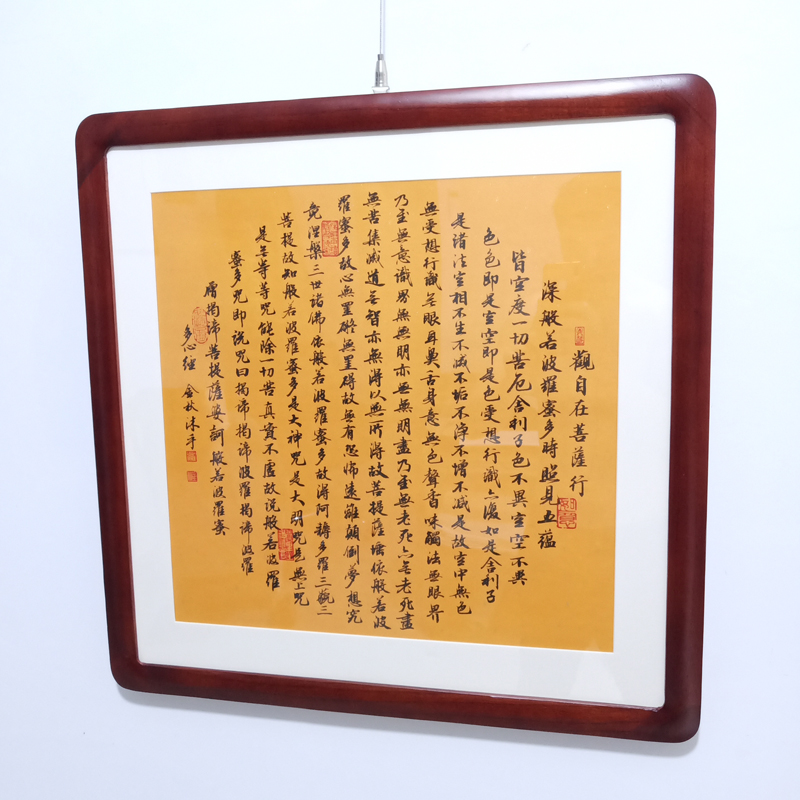 觀自在菩薩行
深般若波羅蜜多時照見五蘊
皆空度一切苦厄舍利子色不異空空不異
色色即是空空即是色受想行識亦復如是舍利子
是諸法空相不生不滅不垢不淨不增不減是故空中無色
無受想行識无眼耳鼻舌身意無色聲香味觸法無眼界
乃至無意識界無無明亦無無明盡乃至無老死亦无老死盡
無苦集滅道无智亦無得以無所得故菩提薩埵依般若波
羅蜜多故心無罣礙無罣礙故無有恐怖遠離顛倒夢想究
竟涅槃三世諸佛依般若波羅蜜多故得阿耨多羅三藐三
菩提故知般若波羅蜜多是大神咒是大明咒是無上咒
是无等等咒能除一切苦真實不虛故說般若波羅
蜜多咒即說咒曰揭諦揭諦波羅揭諦波羅
僧揭諦菩提薩婆訶般若波羅蜜
多心經 金秋沐手